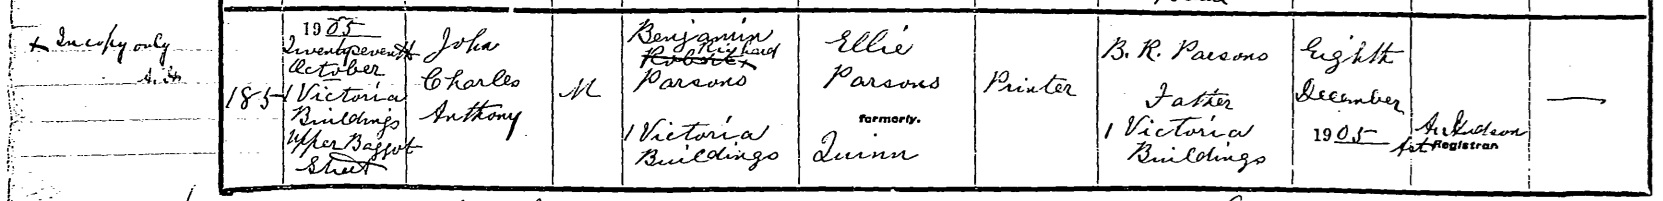 x In copy only
A. H.
185
1905
Twentyseventh
October
1 Victoria
Buildings
Upper Baggot
Street
John
Charles
Anthony
M
Benjamin
Richard
Robert x
Parsons
1 Victoria
Buildings
Ellie
Parsons
formerly.
Quinn
Printer
B. R. Parsons
Father
1 Victoria
Buildings
Eighth
December
1905
A. Hudson
Ast Registrar.